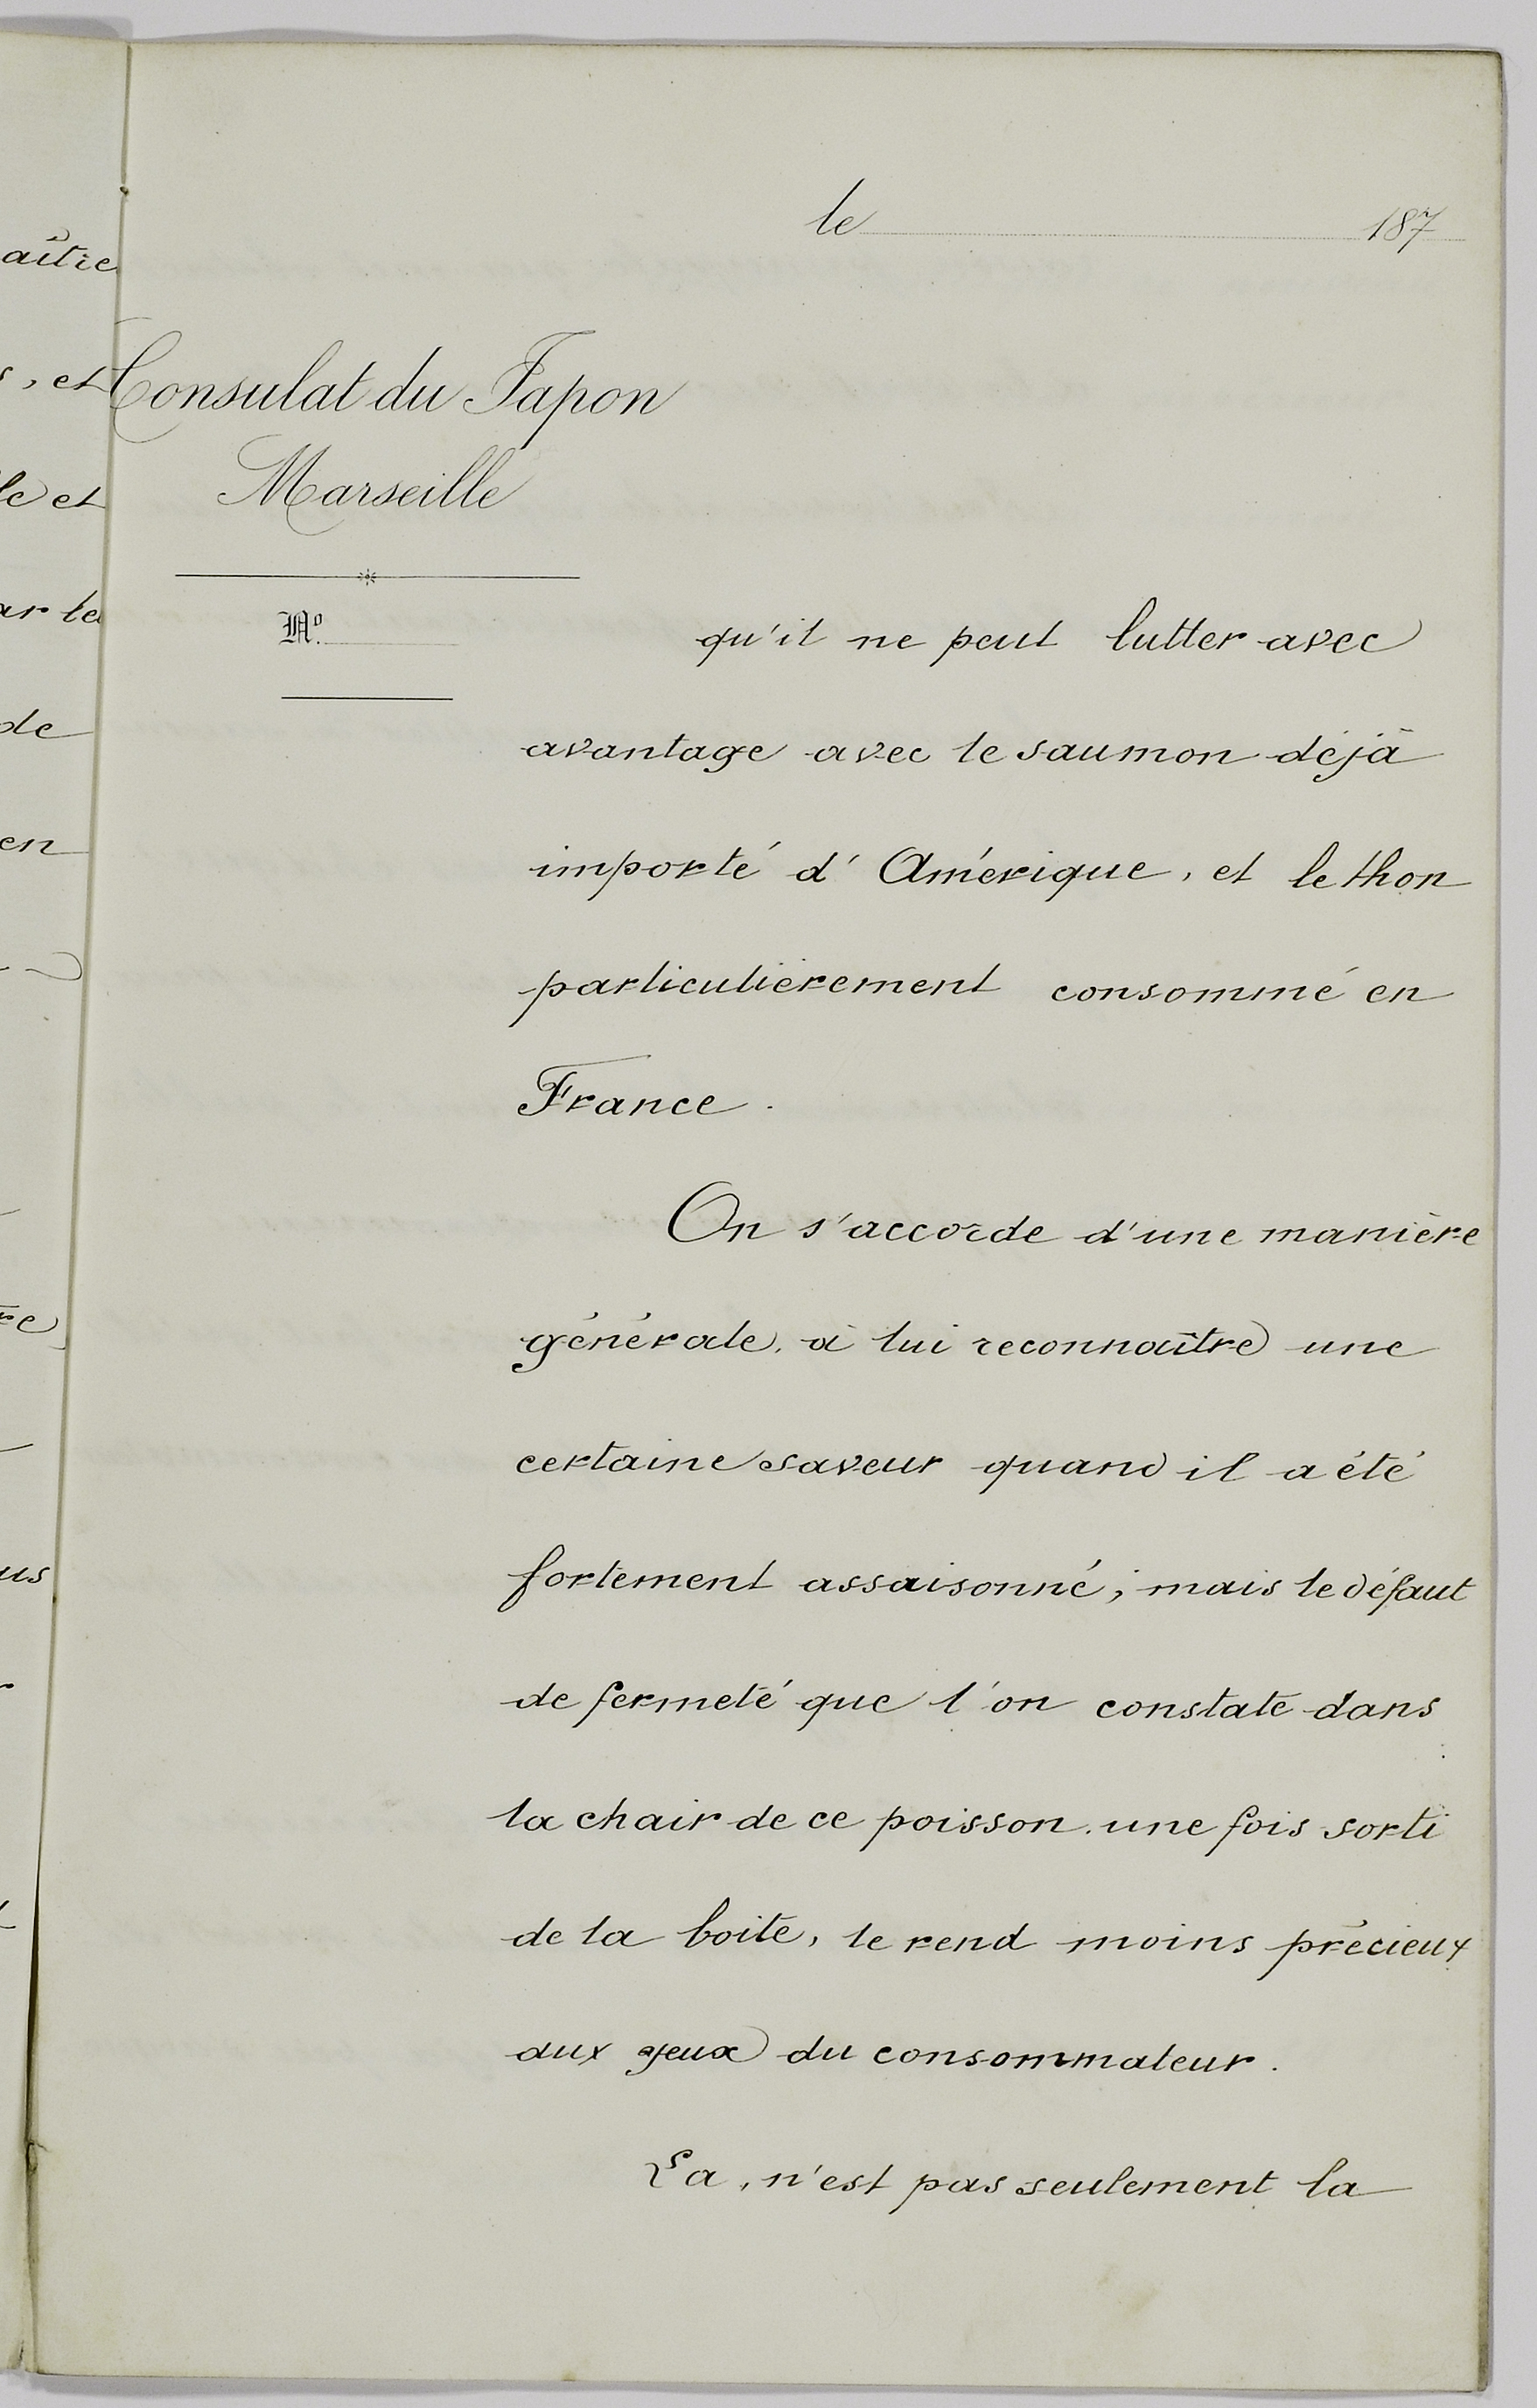 aître
s, et
le et
ar le
de
en
re
us
le 187
Consulat du Japon
Marseille
No.
qu'il ne peut lutter avec
avantage avec le saumon déjà
importé d'Amérique, et le thon
particulièrement consommé en
France.
On s'accorde d'une manière
générale, à lui reconnaître une
certaine saveur quand il a été
fortement assaisonné; mais le défaut
de fermeté que l'on constate dans
la chair de ce poisson. une fois sorti
de la boite, le rend moins précieux
aux yeux du consommateur.
La, n'est pas seulement la